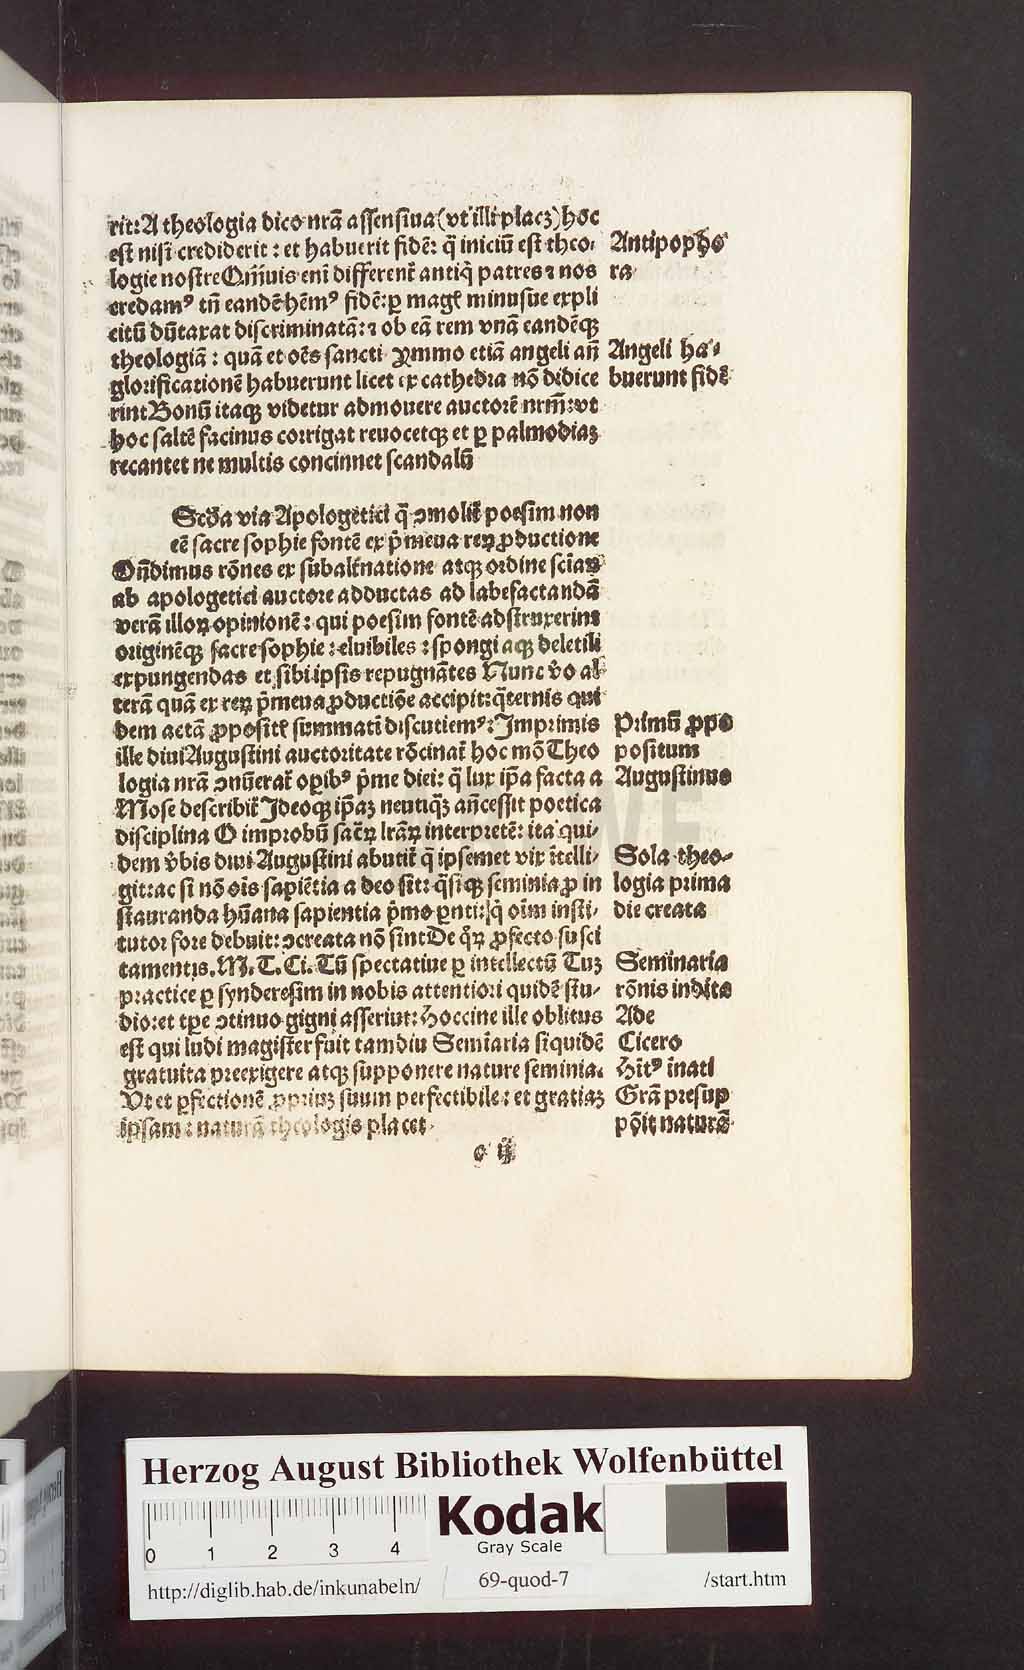 rit: A theologia dico nr̃ã assensiua (vt illi placꝫ) hoc
est nisi crediderit: et habuerit fidẽ: q̃ iniciũ est theo⸗
logie nostre Om̃uis eni different̃ antiq̃ patres ⁊ nos
credamꝰ tñ eandẽ hẽmꝰ fidẽ: ꝑ mage̾ minusue expli
citũ dũtaxat discriminatã: ⁊ ob eã rem vnã eandẽqꝫ
theologiã: quã et oẽs sancti ꝓmmo etiã angeli añ
glorificationẽ habuerunt licet ex cathedra nõ didice
rint Bonũ itaqꝫ videtur admouere auctorẽ nrm̃: vt
hoc saltẽ facinus corrigat reuocetqꝫ et ꝑ palmodiaꝫ
recantet ne multis concinnet scandalũ
Antipopho
ra
Angeli ha⸗
buerunt fidẽ
Scd̃a via Apologetici q̃ ꝯmolit̃ poesim non
eẽ sacre sophie fontẽ ex p̃meua reꝝ ꝓductione
Oñdimus rõnes ex subalt̃natione atqꝫ ordine sciaꝝ
ab apologetici auctore adductas ad labefactandã
verã illoꝝ opinionẽ: qui poesim fontẽ adstruxerint
originẽqꝫ sacre sophie: eluibiles: spongiaqꝫ deletili
expungendas et sibiipsis repugnãtes Nunc v̾o al
terã quã ex reꝝ p̃meua ꝓductiõe accipit: q̃ternis qui
dem actã ꝓposit̃ summati discutiemꝰ: Imprimis
ille diui Augustini auctoritate rõcinat̃ hoc mõ Theo
logia nr̃ã ꝯnũerat̃ oꝑibꝰ p̃me diei: q̃ lux ip̃a facta a
Mose describit̃ Ideoqꝫ ip̃aꝫ neutiqꝫ añcessit poetica
disciplina O improbũ sac̃ꝝ lr̃ãꝝ interpretẽ: ita qui⸗
dem v̾bis diui Augustini abutit̃ q̃ ipsemet vix ĩtelli⸗
git: ac si nõ oĩs sapiẽtia a deo sit: q̃siqꝫ seminia ꝓ in
stauranda hũana sapientia p̃mo ꝑnti: q̃ oĩm insti⸗
tutor fore debuit: ꝯcreata nõ sint De q̃ꝝ ꝓfecto susci
tamentis. M. T. Ci. Tũ spectatiue ꝑ intellectũ Tuꝫ
practice ꝑ synderesim in nobis attentiori quidẽ stu⸗
dio: et tꝑe ꝯtinuo gigni asseriut: Hoccine ille oblitus
est qui ludi magister fuit tamdiu Semĩaria siquidẽ
gratuita preexigere atqꝫ supponere nature seminia⸗
Vt et ꝑfectionẽ ꝓpriuꝫ suum perfectibile: et gratiaꝫ
ipsam: naturã theologis placet.
Primũ ꝓpo
positum
Augustinus
Sola theo⸗
logia prima
die creata
Seminaria
rõnis indita
Ade
Cicero
Hitꝰ inati
Gr̃ã presup
põit naturã
c ij
Herzog August Bibliothek Wolfenbüttel
0 1 2 3 4
Kodak
Gray Scale
http://diglib.hab.de/inkunabeln/
69-quod-7
/start.htm